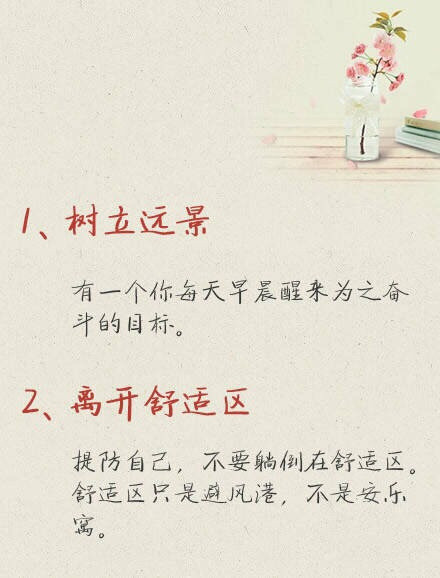 1、树立远景
有一个你每天早晨醒来为之奋
斗的目标。
2、离开舒适区
提防自己，不要躺倒在舒适区。
舒适区只是避风港，不是安乐
窝。